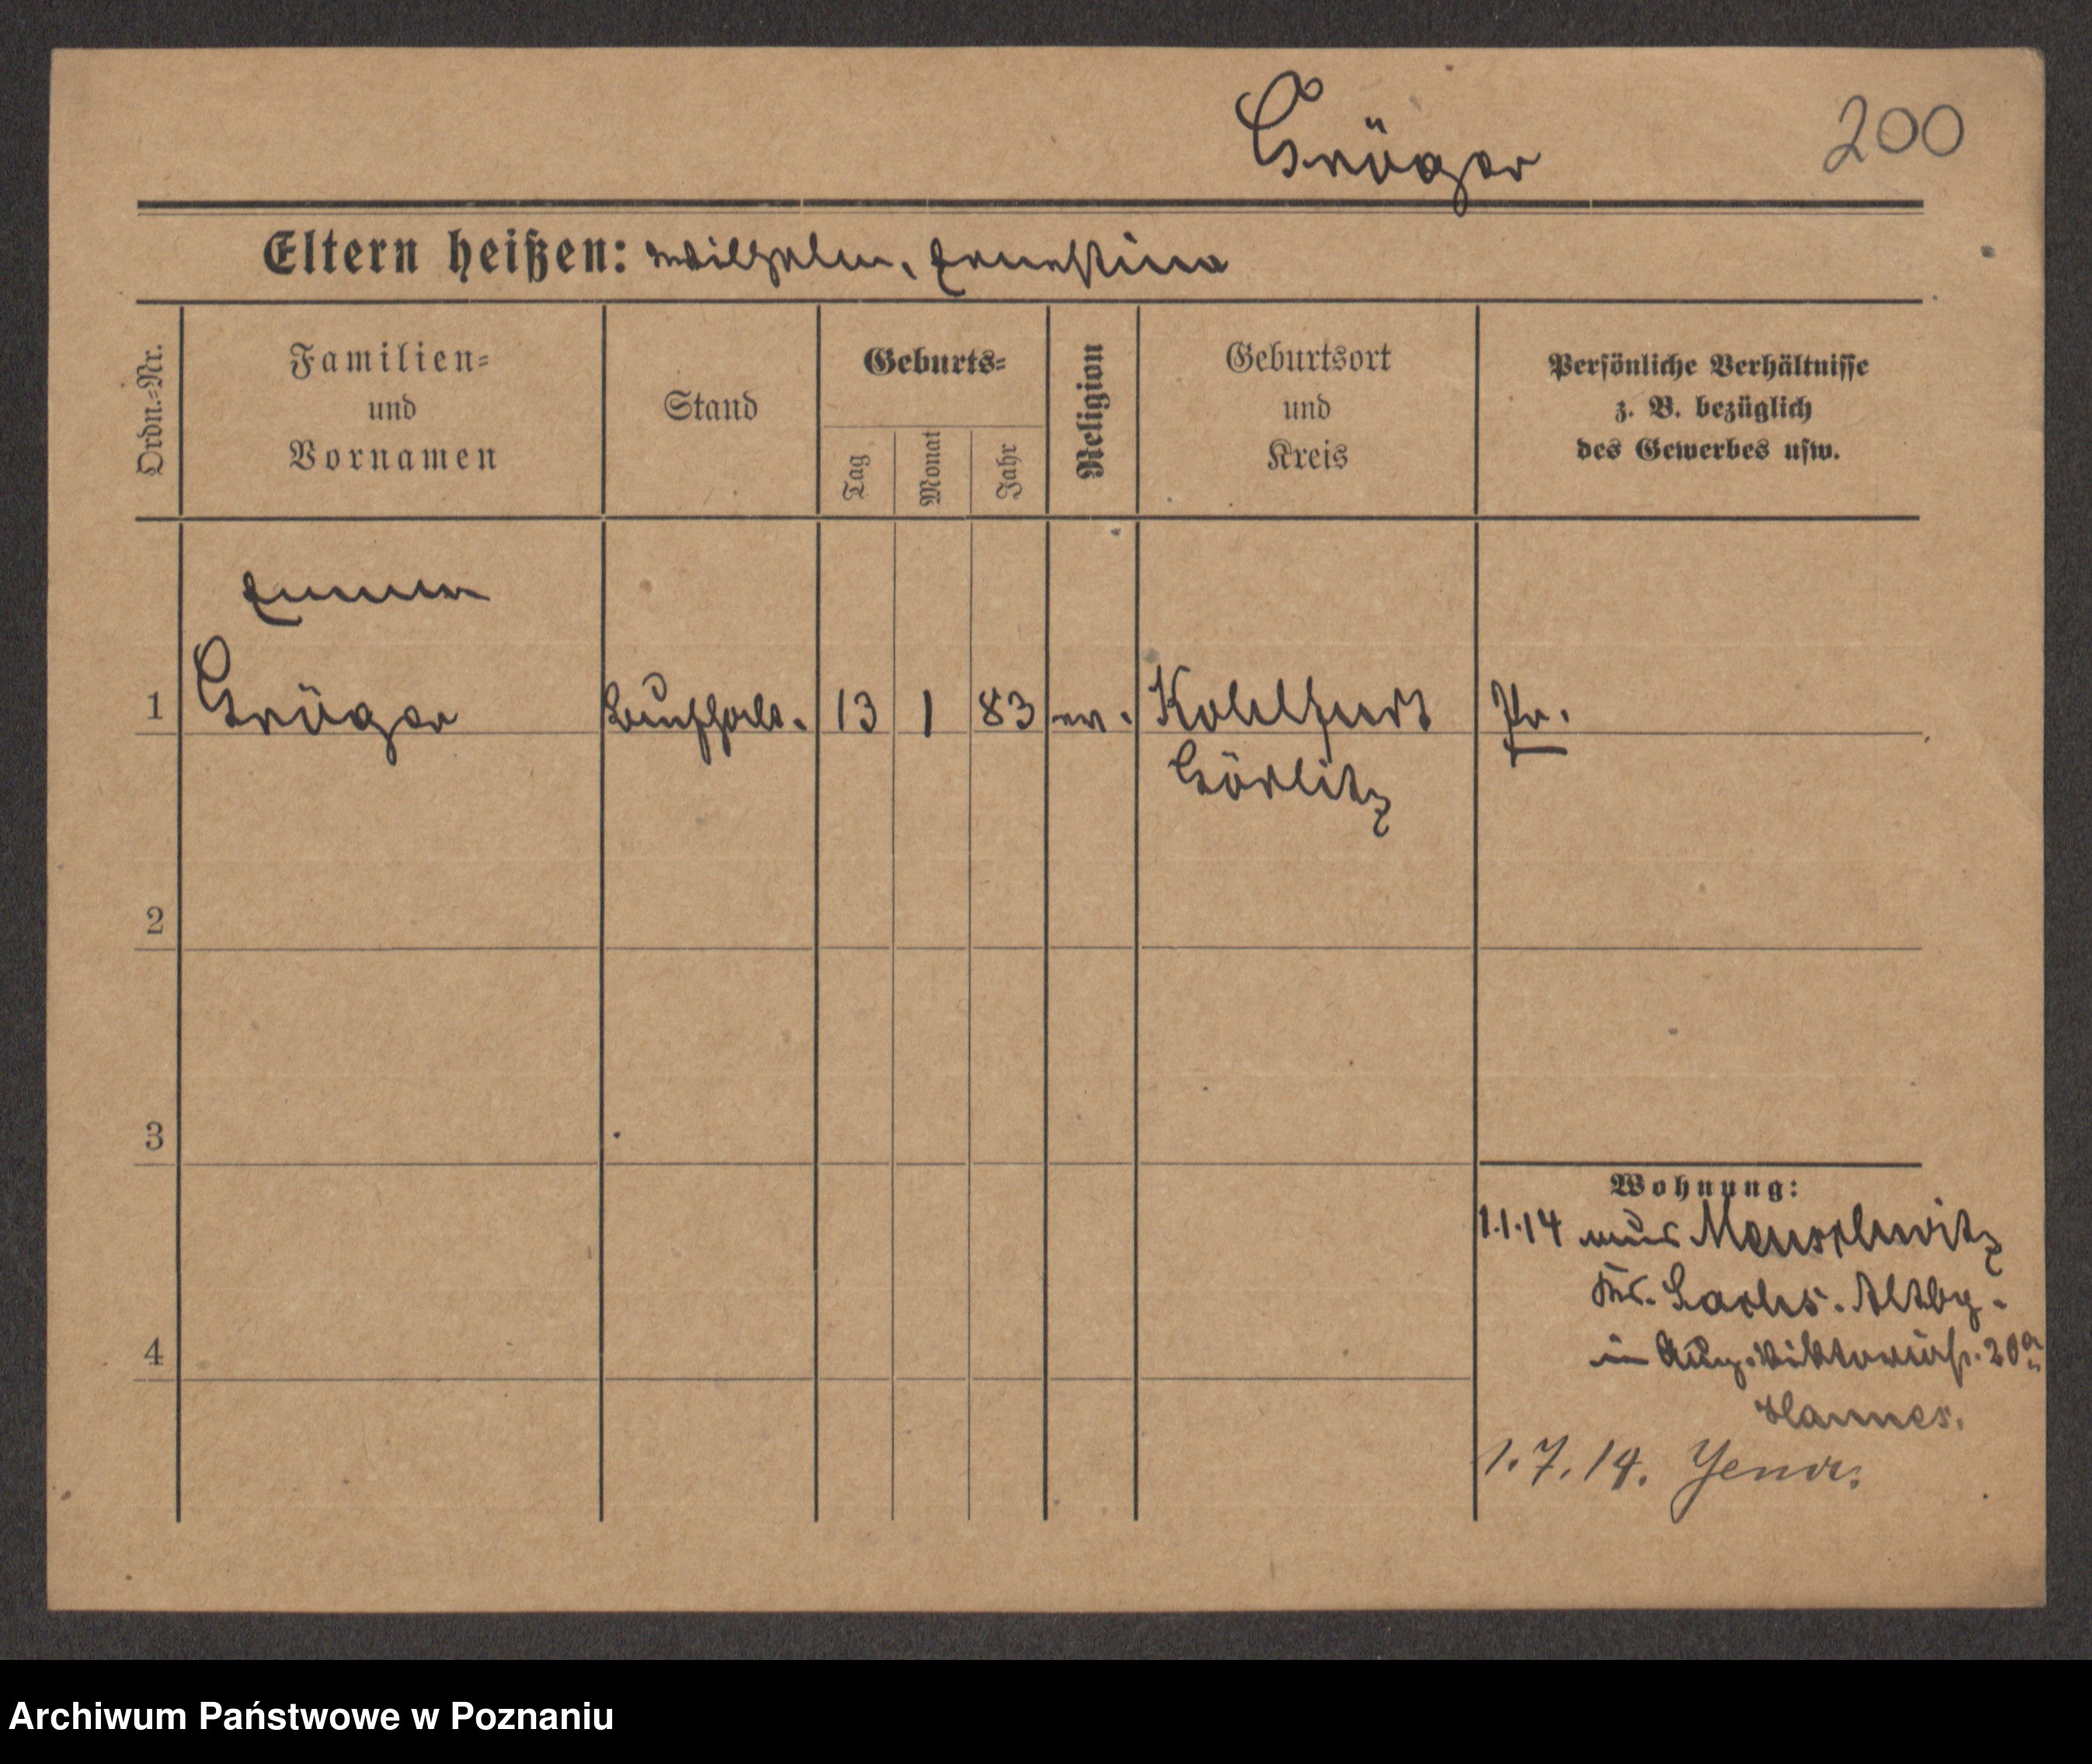 Gröger
200
Eltern heißen: Wilhelm, Ernestine
Ordn.=Nr.
Familien=
und
Vornamen
Stand
Geburts=
Tag
Monat
Jahr
Religion
Geburtsort
und
Kreis
Persönliche Verhältnisse
z. B. bezüglich
des Gewerbes usw.
Emma
1 Gröger Buchhalt. 13 1 83 ev. Kohlfurt Pr.
Görlitz
2
3
4
Wohnung:
1.1.14 aus Meuselwitz
Kr. Sachs. Altbg.
in Aug. Viktoriastr. 20a
Hannes.
1.7.14. Jena.
Archiwum Państwowe w Poznaniu